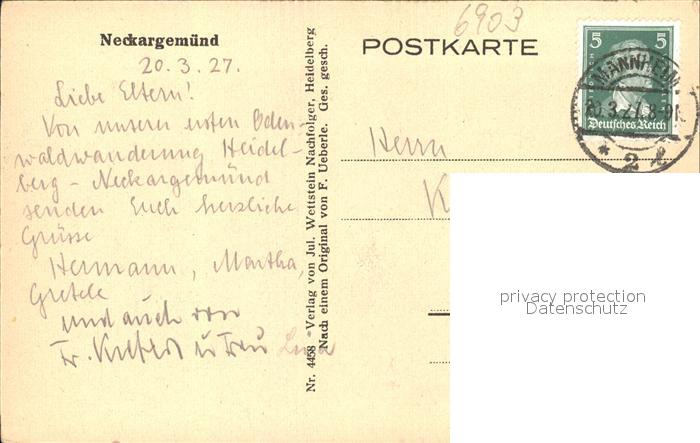 Neckargemünd
20.3.27.
Liebe Eltern!
Von unserer ersten Oden-
waldwanderung Heidel-
berg - Neckargemünd
senden Euch herzliche
Grüsse
Hermann, Martha,
Gretele
und auch von
Fr. u Frau
Nr. 4458 Verlag von Jul. Wettstein Nachfolger, Heidelberg
Nach einem Original von F. Ueberle. Ges. gesch.
6903
POSTKARTE
5 5
MANNHEIM
Deutsches Reich
* 2
Herrn
K
privacy protection
Datenschutz